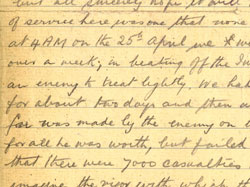 but all sincerely hope it will
of service here was one that none
at 4 AM on the 25th April we
over a week; in beating off the
an enemy to treat lightly. We
for about two days and then
was made by the enemy on
for all he was worth, but failed
that there were 7000 casualties
imagine the vigor with which